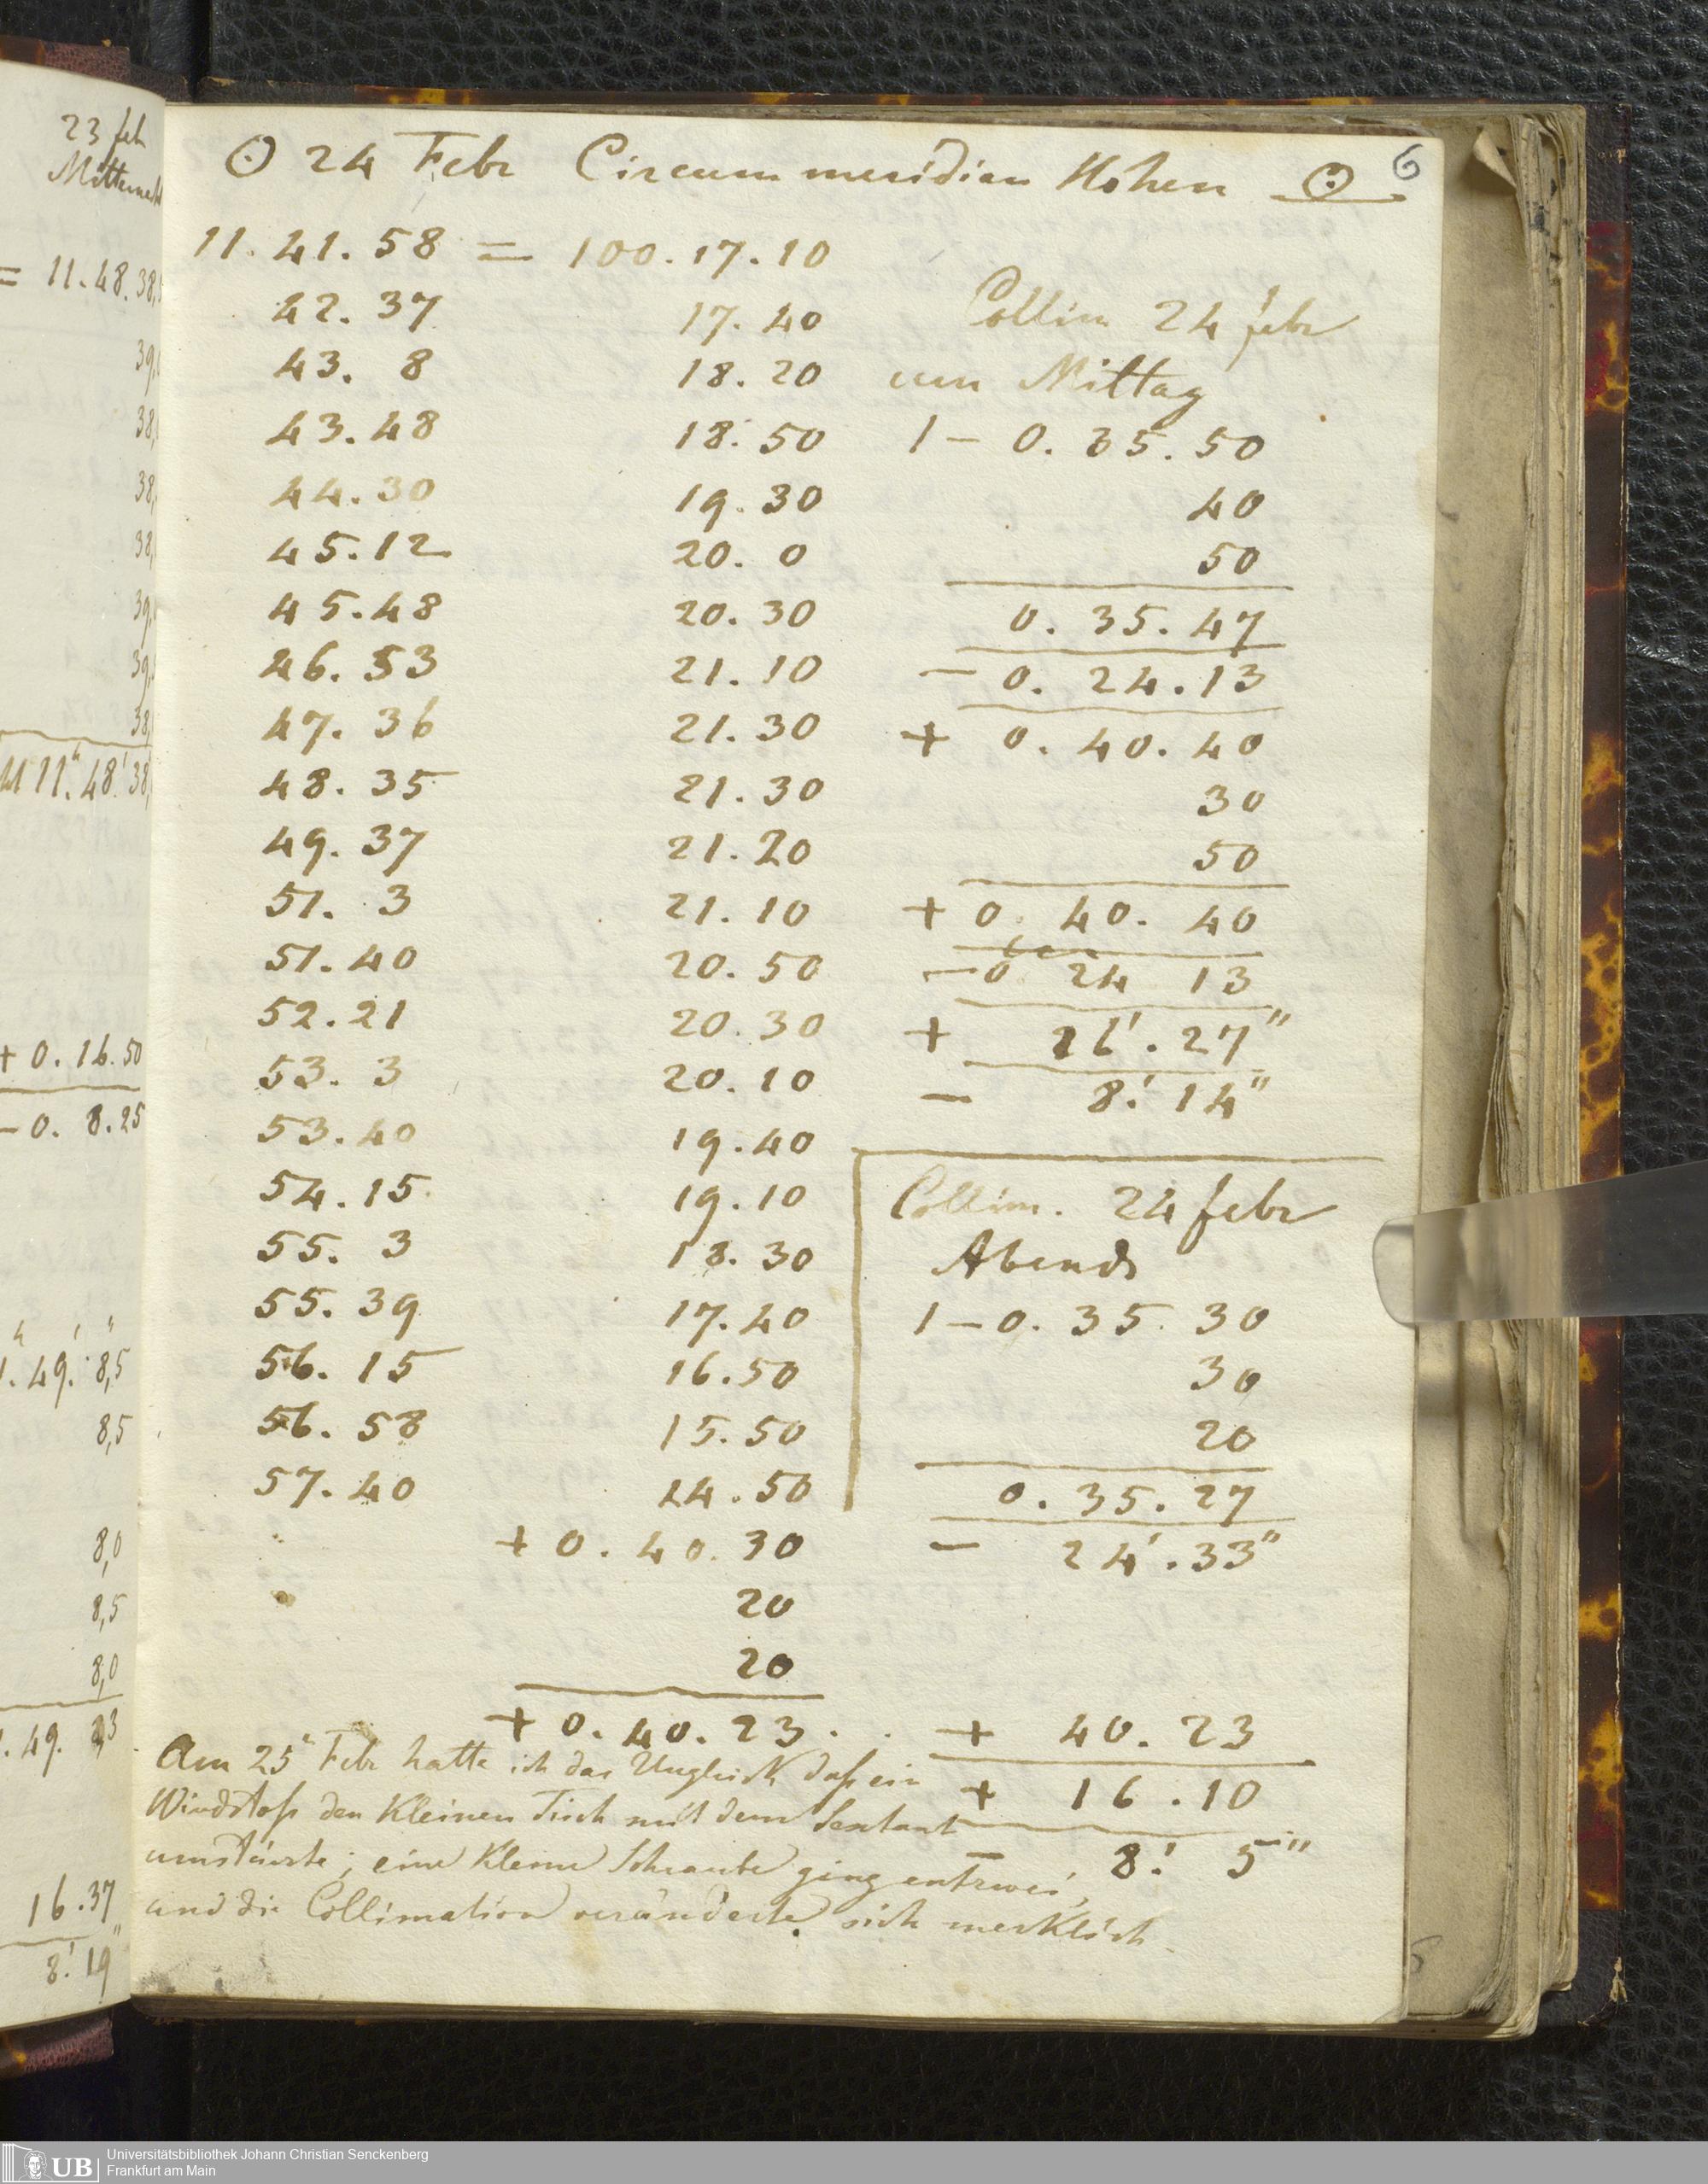 23 feb
Mitternacht
= 11.48.38,
39,
38,
38,
38,
39,
39,
38,
M 11.h 48.' 38,
+ 0. 16. 50
- 0. 8. 25
h ' "
. 49. 8,5
8,5
8,0
8,5
8,0
. 49. 8,3
16.37
8.' 19"
☉ 24 Febr Circummeridian Höhen ☉ 6
11. 41. 58 = 100. 17. 10
42. 37 17. 40
43. 8 18. 20
43. 48 18. 50
44. 30 19. 30
45. 12 20. 0
45. 48 20. 30
46. 53 21. 10
47. 36 21. 30
48. 35 21. 30
49. 37 21. 20
51. 3 21. 10
51. 40 20. 50
52. 21 20. 30
53. 3 20. 10
53. 40 19. 40
54. 15 19. 10
55. 3 18. 30
55. 39 17. 40
56. 15 16. 50
56. 58 15. 50
57. 40 14. 50
+ 0. 40. 30
20
20
+ 0. 40. 23.
Collim 24 febr
um Mittag
1 - 0. 35. 50
40
50
0. 35. 47
- 0. 24. 13
+ 0. 40. 40
30
50
+ 0. 40. 40
- 0 24 13
+ 16'. 27"
- 8.' 14"
Collim. 24 febr
Abends
1 - 0. 35. 30
30
20
0. 35. 27
- 24'. 33"
+ 40. 23
+ 16. 10
- 8.' 5"
Am 25 Febr hatte ich das Unglück daß ein
Windstoß den Kleinen Tisch mit dem Sextant
umstürzte; eine Kleine Schraube ging entzwei,
und die Collimation veränderte sich merklich.
Universitätsbibliothek Johann Christian Senckenberg
UB
Frankfurt am Main